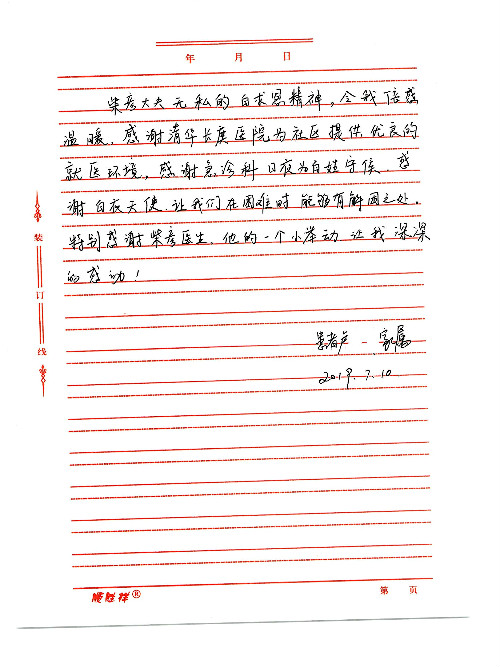 年 月 日
柴彦大夫无私的白求恩精神，令我倍感
温暖，感谢清华长庚医院为社区提供优良的
就医环境，感谢急诊科日夜为百姓守候，感
谢白衣天使让我们在困难时能够有解困之处。
特别感谢柴彦医生，他的一个小举动让我深深
的感动！
患者 一家属
2019.7.10
装
订
线
顺胜祥®
第 页